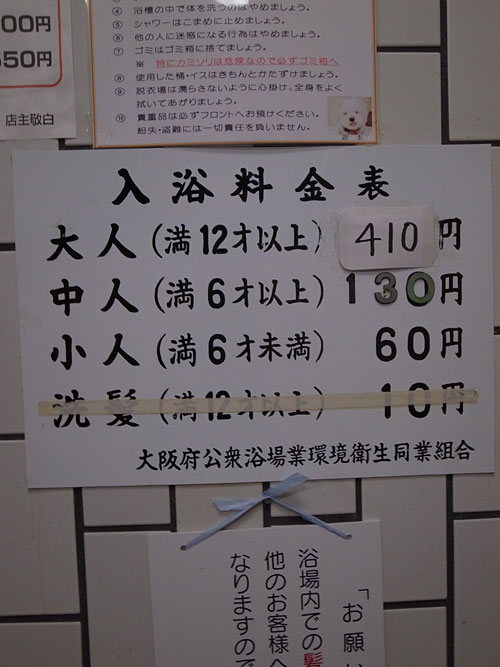 00円
550円
店主敬白
④ 浴槽の中で体を洗うのはやめましょう。
⑤ シャワーはこまめに止めましょう。
⑥ 他の人に迷惑になる行為はやめましょう。
⑦ ゴミはゴミ箱に捨てましょう。
※ 特にカミソリは危険なので必ずゴミ箱へ
⑧ 使用した桶・イスはきちんとかたずけましょう。
⑨ 脱衣場は濡らさないように心掛け、全身をよく
拭いてあがりましょう。
⑩ 貴重品は必ずフロントへお預けください。
紛失・盗難には一切責任を負いません。
店主
入浴料金表
大人(満12才以上) 410円
中人(満6才以上) 130円
小人(満6才未満) 60円
洗髪(満12才以上) 10円
大阪府公衆浴場業環境衛生同業組合
「お願い
浴場内での髪
他のお客様へ
なりますので